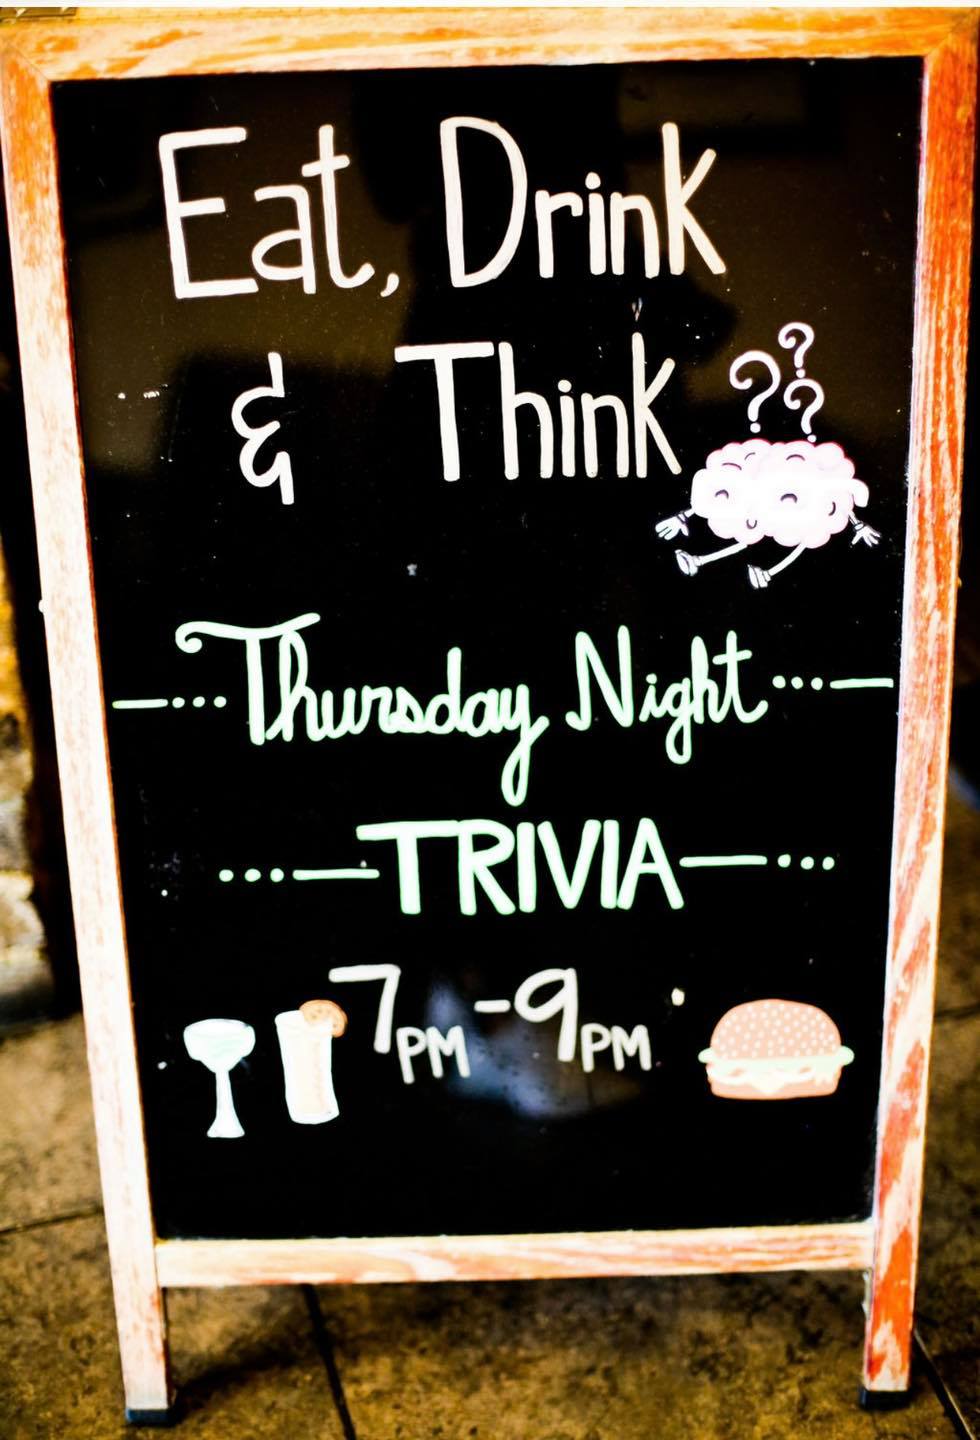 Eat, Drink
& Think
???
Thursday Night
TRIVIA
7PM-9PM